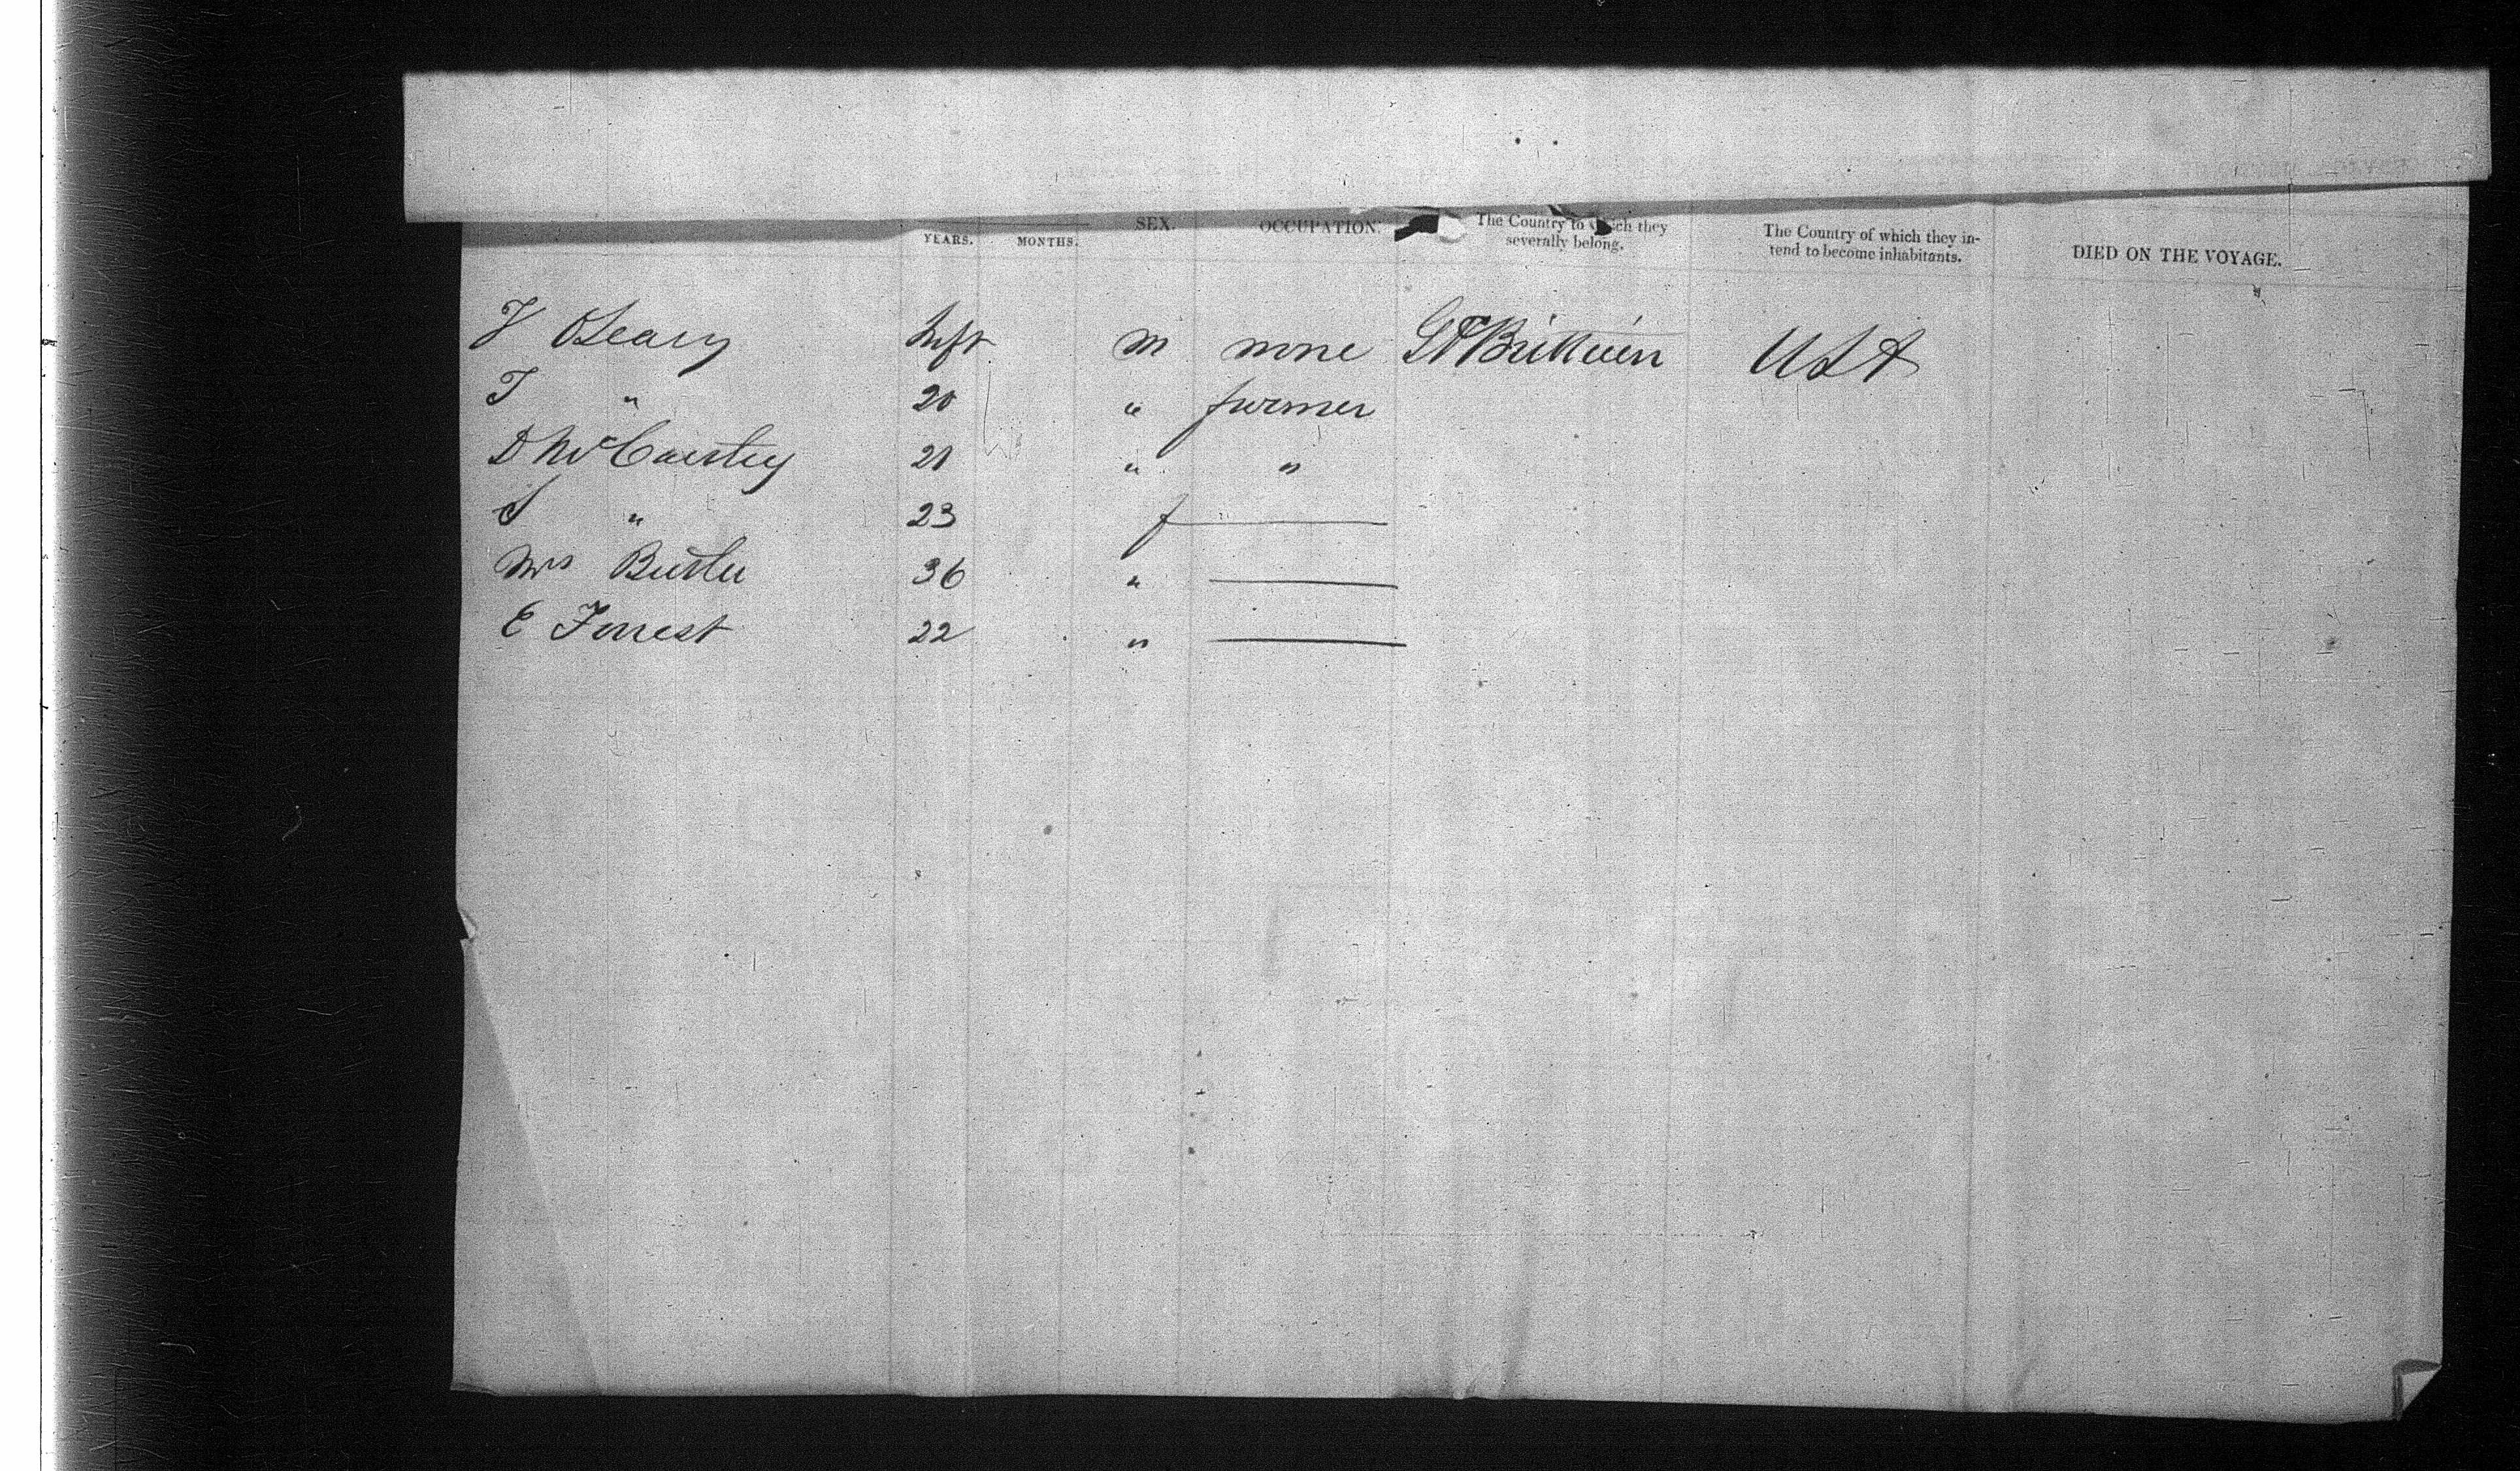 YEARS. MONTHS. SEX. OCCUPATION. The Country to which they severally belong. The Country of which they in-tend to become inhabitants. DIED ON THE VOYAGE.
OLeary Inft m none Gt Brittain USA
T " 20 " farmer
D McCartey 21 " "
S " 23 f
Mrs Butler 36 "
E Forrest 22 "